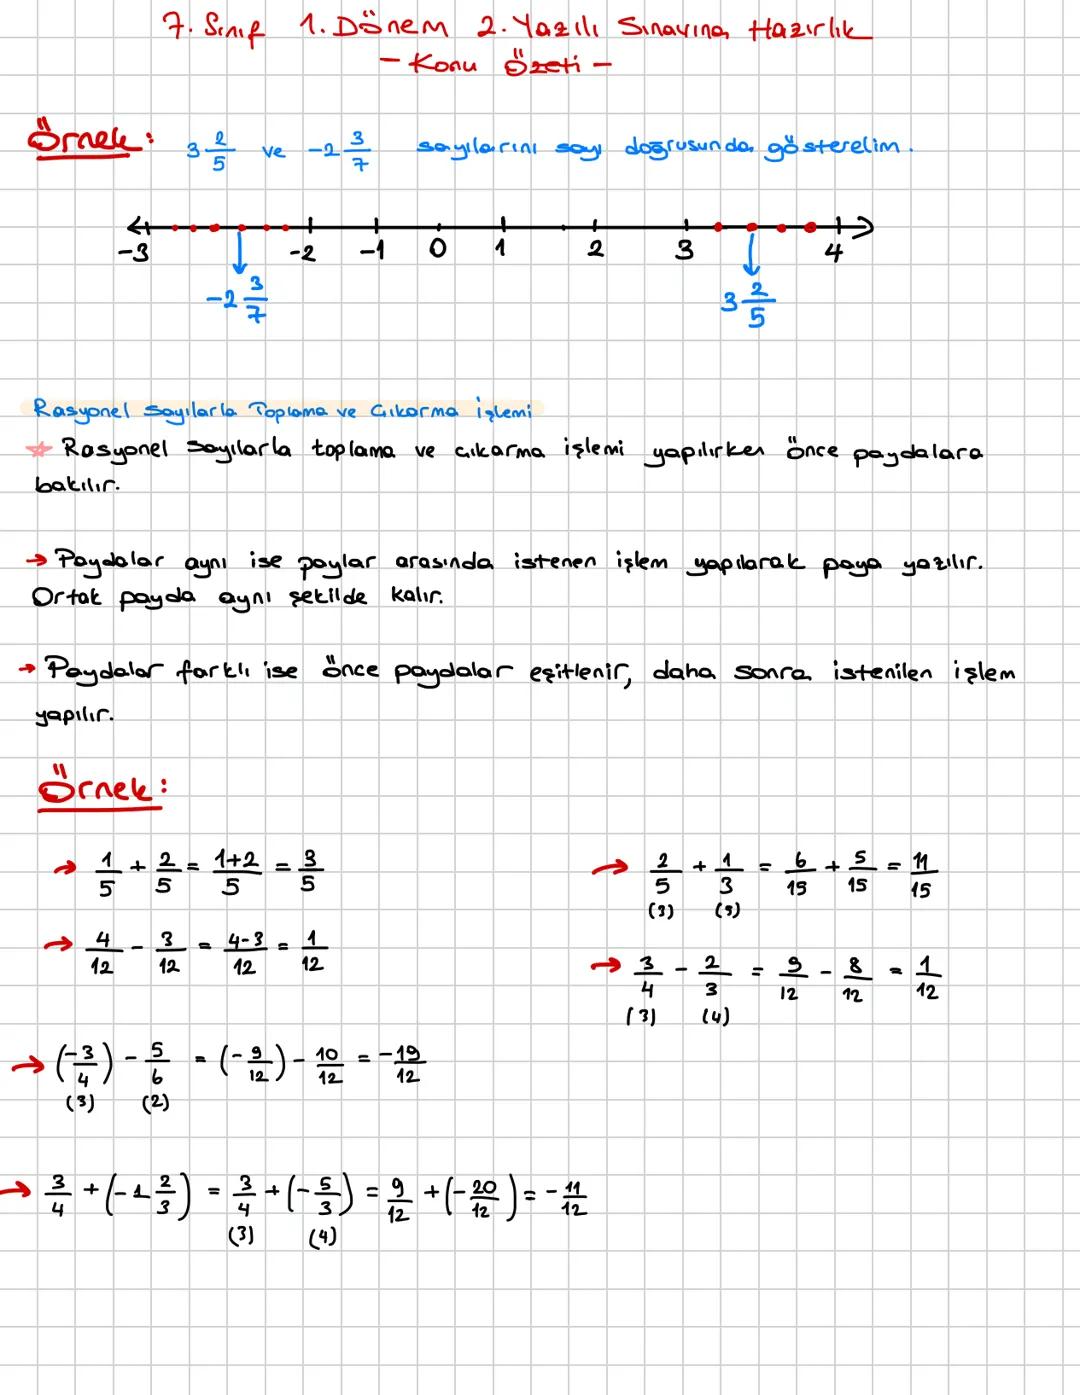 7. Sınıf 1. Dönem 2. Yazılı Sınavına Hazırlık
- Konu Özeti -
Örnek: 3 2/5 ve -2 3/7 sayılarını sayı doğrusunda gösterelim.
-3 -2 -1 0 1 2 3 4
-2 3/7 3 2/5
Rasyonel Sayılarla Toplama ve Çıkarma İşlemi
Rasyonel sayılarla toplama ve çıkarma işlemi yapılırken önce paydalara
bakılır.
→ Paydalar aynı ise paylar arasında istenen işlem yapılarak paya yazılır.
Ortak payda aynı şekilde kalır.
→ Paydalar farklı ise önce paydalar eşitlenir, daha sonra istenilen işlem
yapılır.
Örnek:
→ 1/5 + 2/5 = 1+2/5 = 3/5
→ 2/5 + 1/3 = 6/15 + 5/15 = 11/15
(3) (5)
→ 4/12 - 3/12 = 4-3/12 = 1/12
→ 3/4 - 2/3 = 9/12 - 8/12 = 1/12
(3) (4)
→ (-3/4) - 5/6 = (-9/12) - 10/12 = -19/12
(3) (2)
→ 3/4 + (-1 2/3) = 3/4 + (-5/3) = 9/12 + (-20/12) = -11/12
(3) (4)